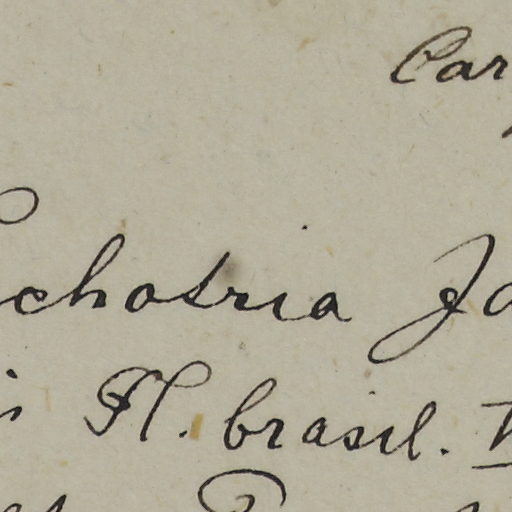 Car
chotria Ja
is Fl. brasil.